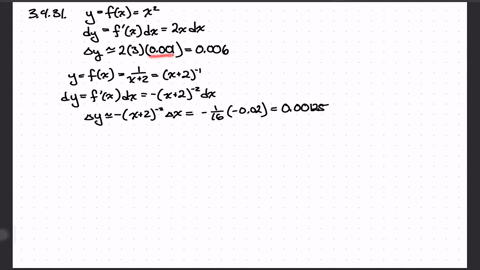 3.4.31. y = f(x) = x²
dy = f'(x) dx = 2x dx
Δy ≃ 2(3)(0.001) = 0.006
y = f(x) = 1/(x+2) = (x+2)⁻¹
dy = f'(x) dx = -(x+2)⁻² dx
Δy ≃ -(x+2)⁻² Δx = -1/16 (-0.02) = 0.00125